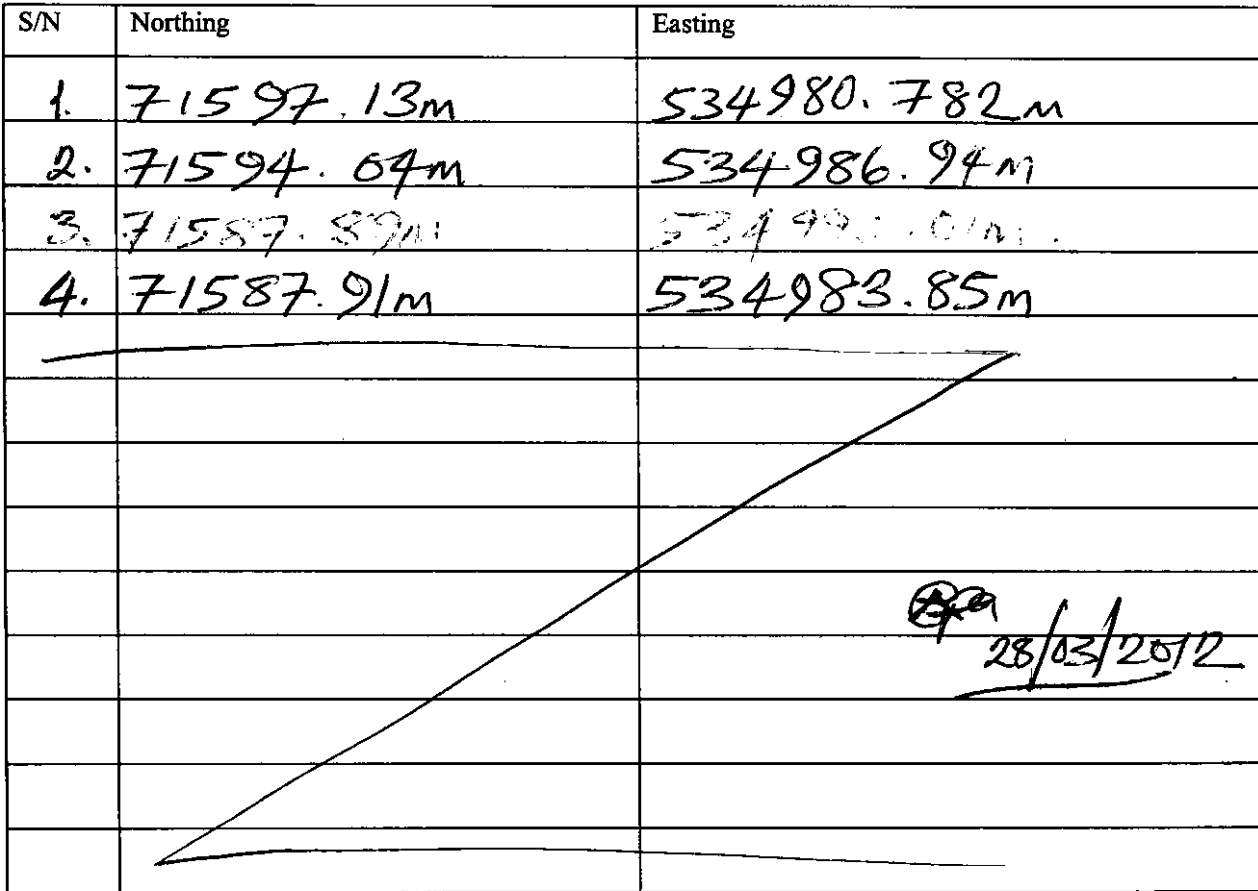 S/N Northing Easting
1. 71597.13m 534980.782m
2. 71594.04m 534986.94m
3. 71587.89m
4. 71587.91m 534983.85m
28/03/2012